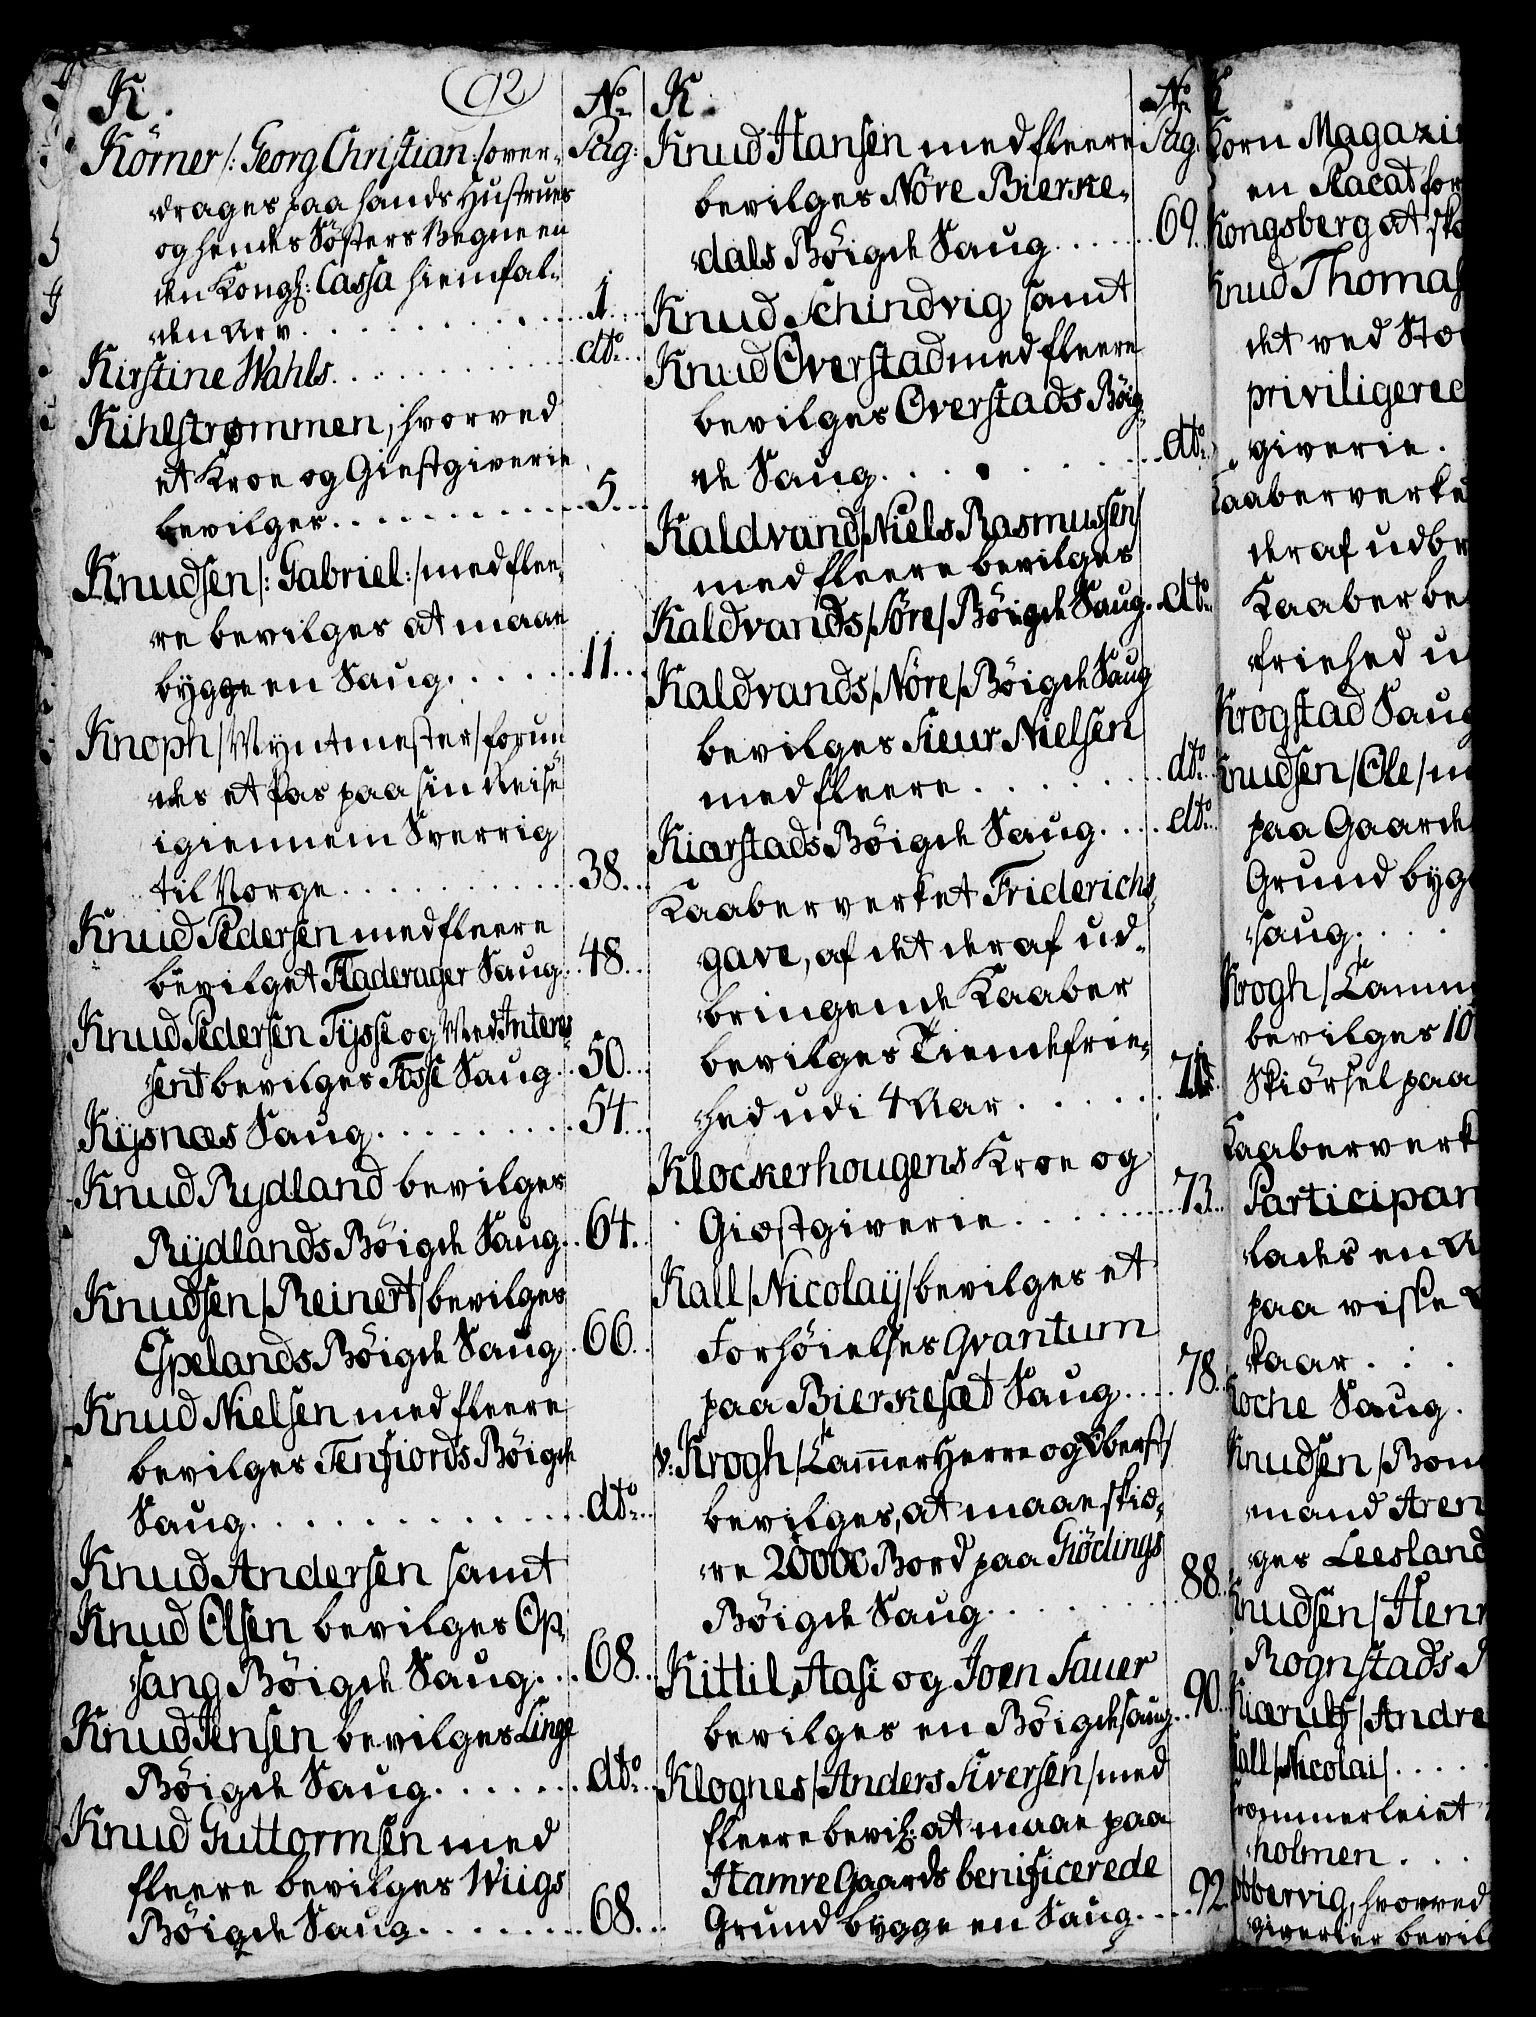 K. 92 No
Körner /: Georg Christian :/ over- Pag:
drages paa hands Hustrues
og hendes Søsters Vegne en
den Kongl: Cassa hiemfal-
den Arv . . . . . . . . . 1.
Kirstine Wahls . . . . . . . . dto.
Kihlstrømmen, hvorved
et Kroe og Giestgiverie
bevilges . . . . . . . . . . . 5.
Knudsen /: Gabriel :/ med flee-
re bevilges at maae
bygge en Saug . . . . . . 11.
Knoph / Myntmester / forun
des et Pas paa sin Reise
igiennem Sverrig
til Norge . . . . . . . . . . 38.
Knud Pedersen med fleere
bevilget Fladerager Saug . . 48.
Knud Pedersen Tysse og Med Interes-
sent bevilges Fosse Saug . . 50.
Kysnæs Saug . . . . . . . . . 54.
Knud Rydland bevilges
Rydlands Böigde Saug . . 64.
Knudsen / Reinert / bevilges
Espelands Böigde Saug . 66.
Knud Nielsen med fleere
bevilges Tenfiords Böigde
Saug . . . . . . . . . . . . . dto.
Knud Andersen samt
Knud Olsen bevilges Op-
sang Böigde Saug . . . 68.
Knud Jensen bevilges Linge
Böigde Saug . . . . . . . dto.
Knud Guttormsen med
fleere bevilges Wiigs
Böigde Saug . . . . . . . . 68.
K. No
Knud Hansen med fleere Pag.
bevilges Nöre Bierke-
dals Böigde Saug . . . . . 69.
Knud Schindvig samt
Knud Overstad med fleere
bevilges Overstads Böig-
de Saug . . . . . . . . . . dto.
Kaldvand / Niels Rasmussen /
med fleere bevilges
Kaldvands / Söre / Böigde Saug . dto.
Kaldvands / Nöre / Böigde Saug
bevilges Sieur Nielsen
med fleere . . . . . . . . dto.
Kiarstads Böigde Saug . . . . dto.
Kaaberverket Friderichs
gave, af det deraf ud-
bringende Kaaber
bevilges Tiendefrie-
hed udi 4 Aar . . . . . . . 71.
Klockerhougens Kroe og
Giæstgiverie . . . . . . . . 73.
Kall / Nicolaÿ / bevilges et
Forhöielses Qvantum
paa Bierkesæt Saug . . . . 78.
v: Krogh / Cammer Herre og Oberst /
bevilges, at maae skiæ-
re 20000 Bord paa Giödings
Böigde Saug . . . . . . . 88.
Kittil Aase og Joen Sauer
bevilges en Böigdesaug . . 90.
Klognes / Anders Siversen / med
fleere bevil: at maae paa
Hamre Gaards benificerede
Grund bygge en Saug . . . . 92.
K
Korn Magazi
en Placat for
Kongsberg at ska
Knud Thomas
det ved Sto
priviligered
giverie .
Kaaberverke
deraf udbr
Kaaber be
friehed u
Krogstad Saug
Knudsen / Ole / m
paa Gaarde
Grund byg
saug . . . .
Krogh / Camm
bevilges 10
Skiörsel paa
Kaaberverk
Participan
lades en A
paa visse
kaar . : .
Koche Saug .
Knudsen / Bon
mand Aren
ges Leesland
Knudsen / Henr
Rognstads
Kiærulf / Andre
Kall / Nicolai / . . . .
Krommerleiet
holmen . . .
Kobbervig, hvorved
giverier bevil